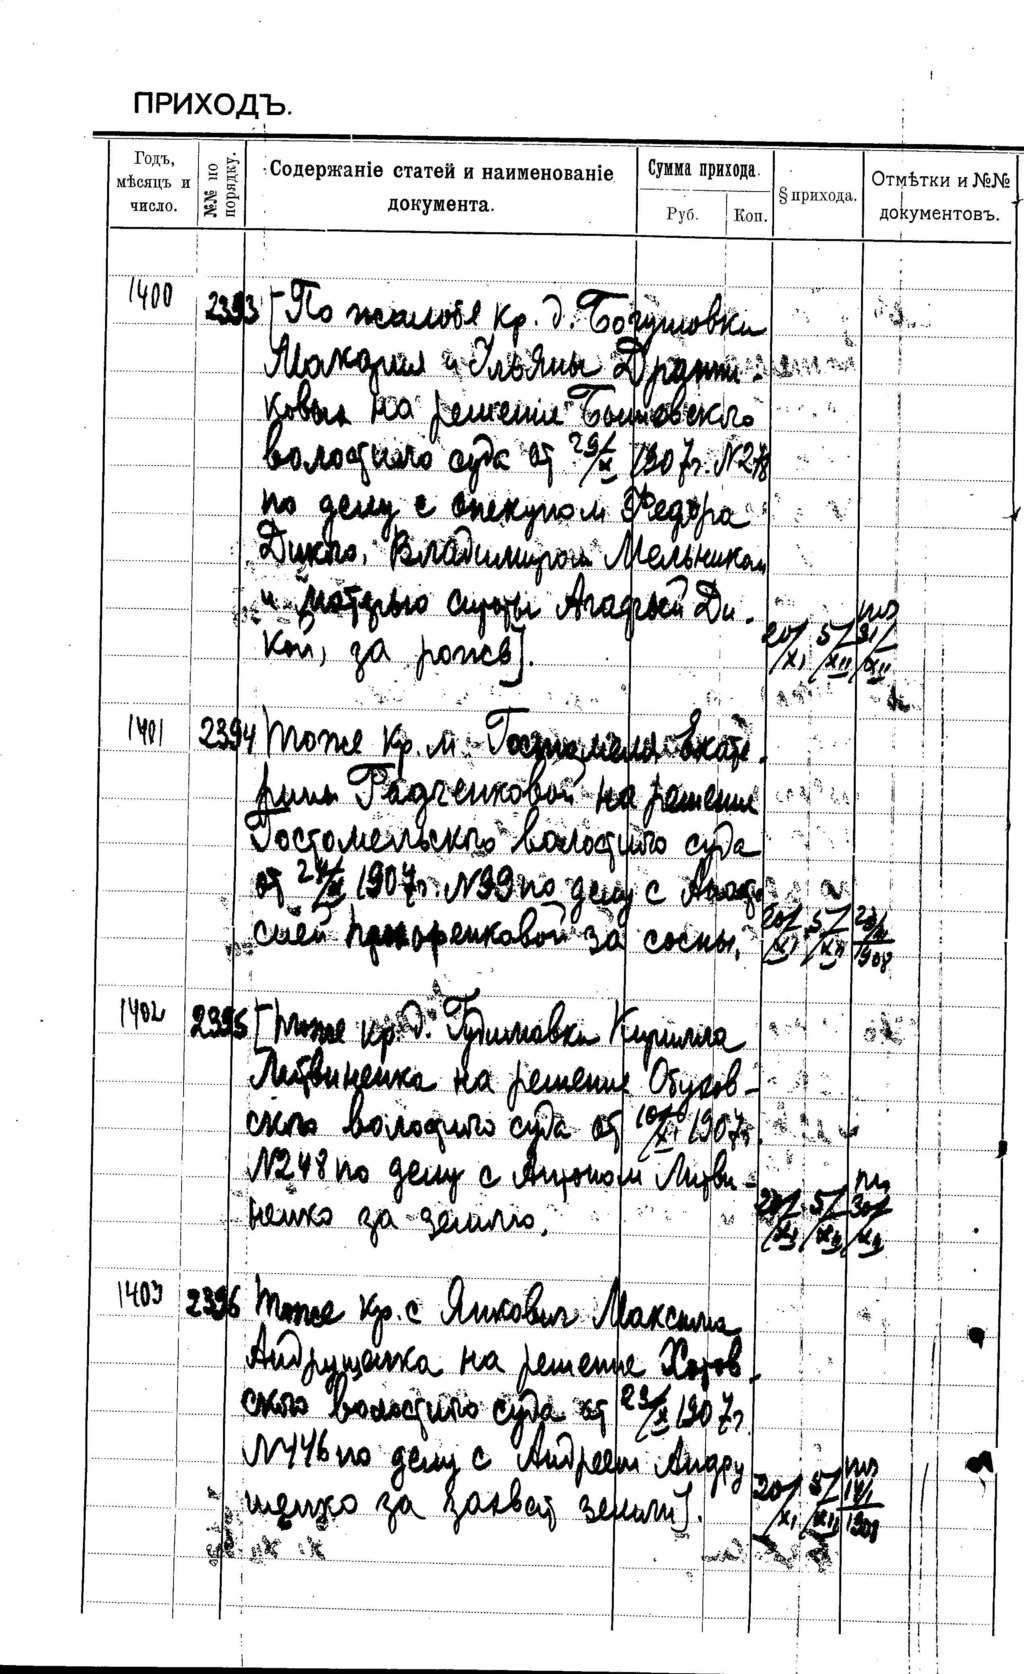 ПРИХОДЪ.
Годъ, мѣсяцъ и число.
№№ по порядку.
Содержаніе статей и наименованіе документа.
Сумма прихода.
Руб.
Коп.
§ прихода.
Отмѣтки и №№ документовъ.
1400 2393 [По жалобе кр. д. Богушовки
Макария и Ульяны
на решение
волостного суда от 29/X 1907 г. N278
по делу с опекуном Федора
Дикого, Владимиром Мельником
и матерью сироты Агафьей Ди-
кой, за рожь].
20/XI 5/XII 31/XII
1401 2394 тоже кр. м. Гостомеля Екате-
рины Радченковой на решение
Гостомельского волостного суда
от 1907 г. N99 по делу с Анаста-
сией Прохоренковой за сосны.
20/XI 5/XII 1908
1402 2395 [тоже кр. д. Гудимовки Кирилла
Литвиненка на решение Обухов-
ского волостного суда от 10/XI 1907 г.
N248 по делу с Антоном Литви-
ненко за землю.
5/XII 30/XII
1403 2396 тоже кр. с Янкович Максима
Андрущенка на решение Хотов-
ского волостного суда от 23/X 1907 г.
N446 по делу с Андреем Андру
щенко за захват земли].
20/XI 5/XII 14/I 1908